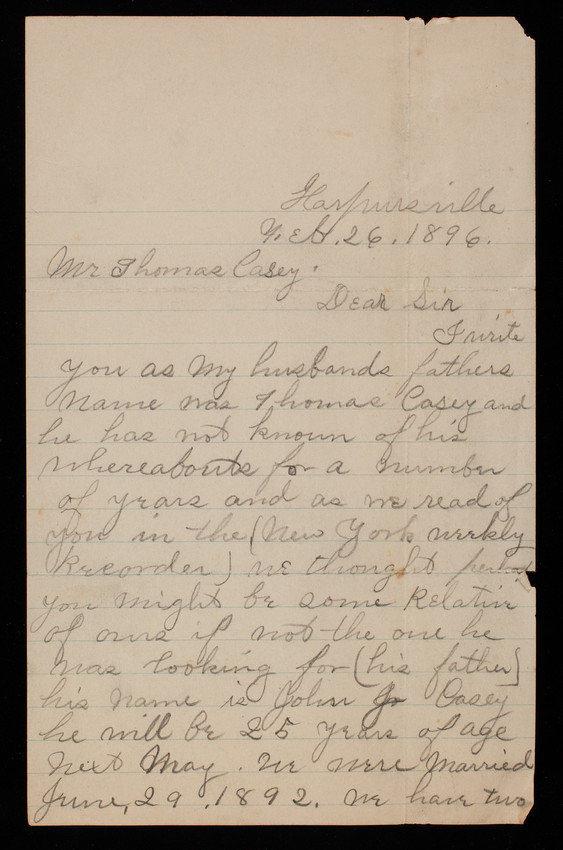 Harpursville
Feb. 26. 1896.
Mr Thomas Casey.
Dear Sir
I write
you as my husbands fathers
name was Thomas Casey and
he has not known of his
whereabouts for a number
of years and as we read of
you in the (New York weekly
Recorder) we thought perhaps
you might be some Relative
of ours if not the one he
was looking for (his father)
his name is John Casey
he will be 25 years of age
next May. We were Married
June, 29. 1892. we have two